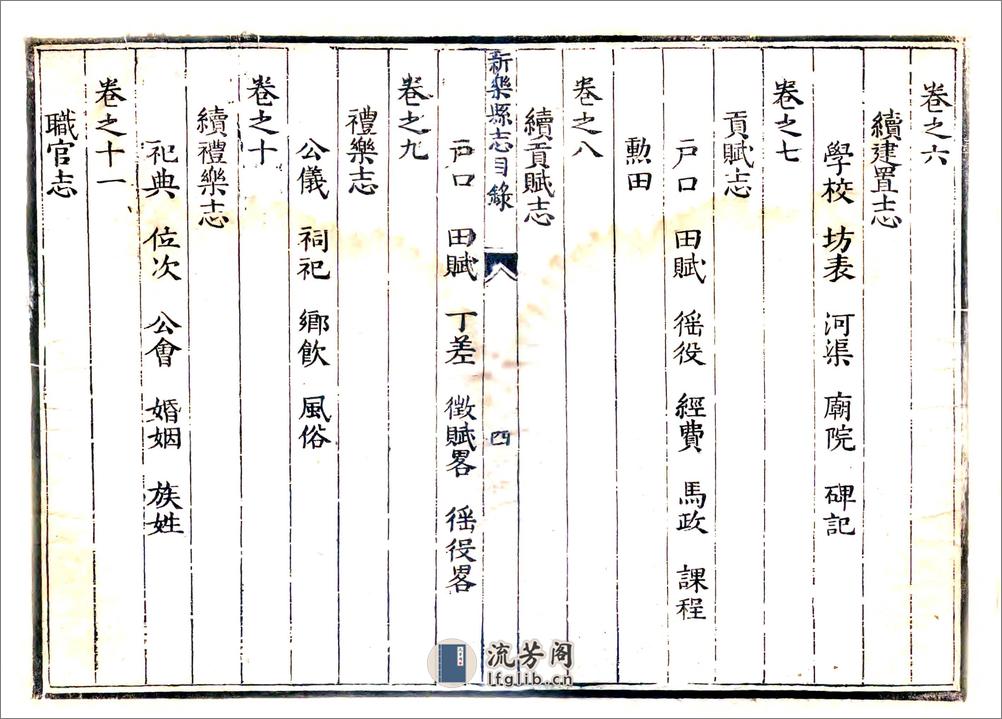 卷之六
續建置志
學校 坊表 河渠 廟院 碑記
卷之七
貢賦志
戸口 田賦 徭役 經費 馬政 課程
勲田
卷之八
續貢賦志
新樂縣志目錄 四
戸口 田賦 丁差 徴賦畧 徭役畧
卷之九
禮樂志
公儀 祠祀 鄉飲 風俗
卷之十
續禮樂志
祀典 位次 公會 婚姻 族姓
卷之十一
職官志
流芳阁
lfglib.cn